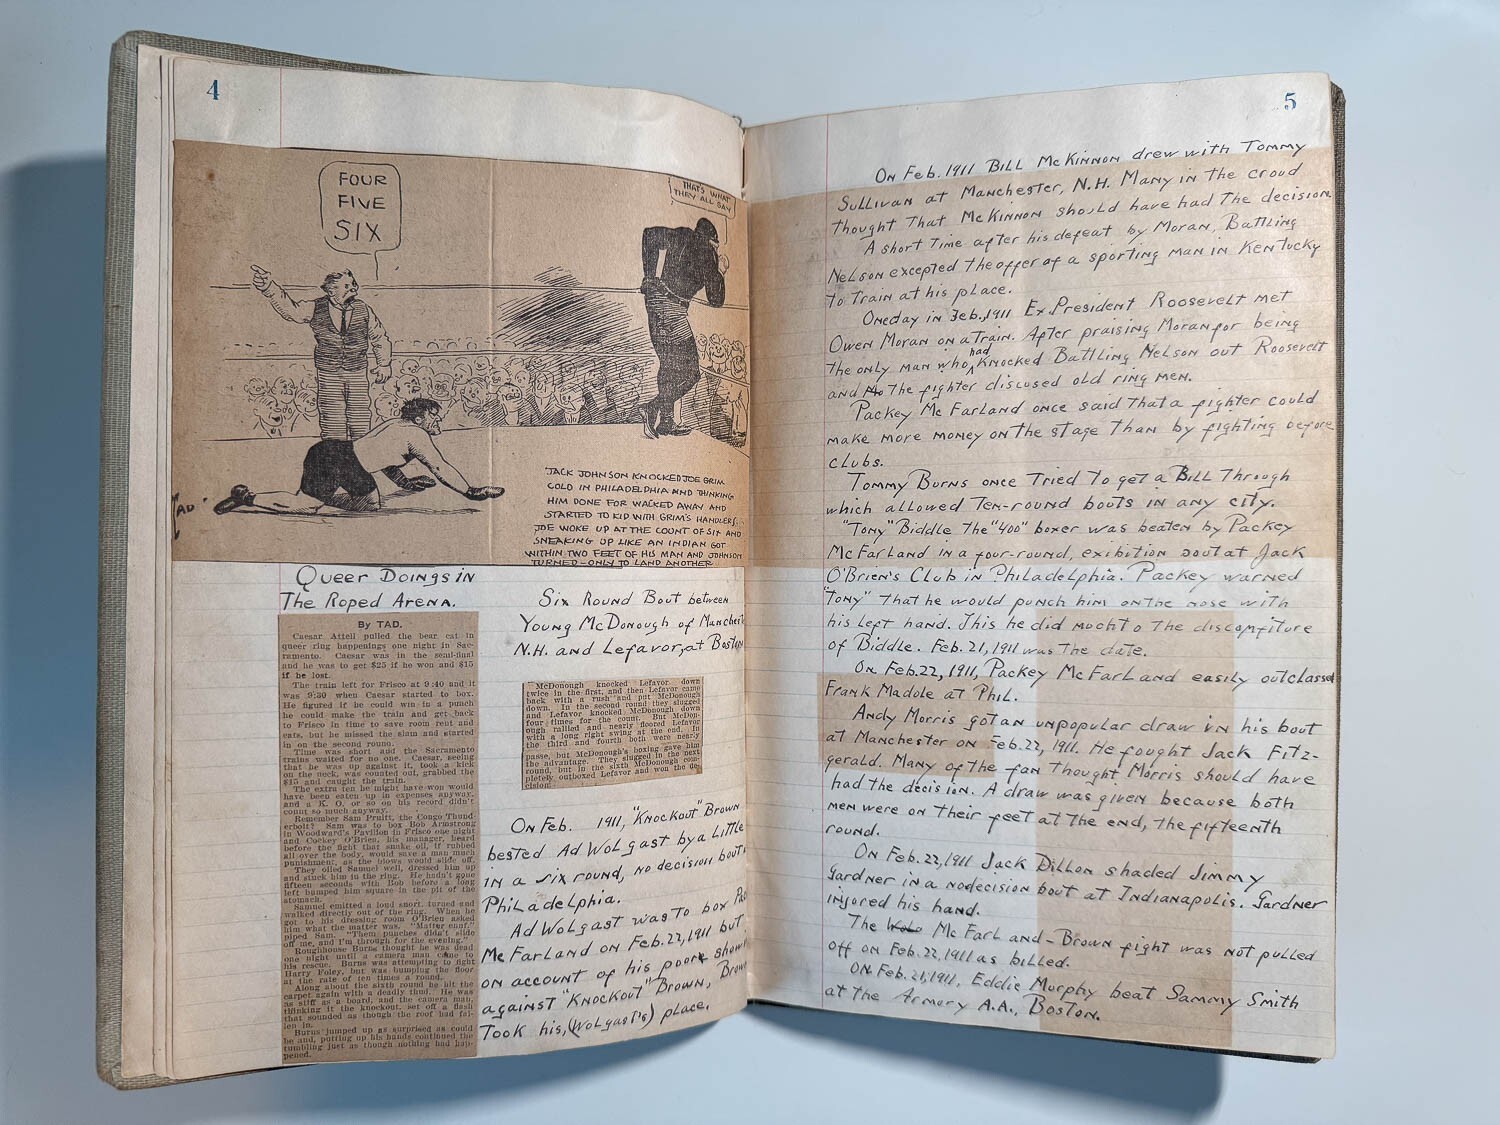 4
FOUR
FIVE
SIX
THAT'S WHAT
THEY ALL SAY
TAD.
JACK JOHNSON KNOCKED JOE GRIM
COLD IN PHILADELPHIA AND THINKING
HIM DONE FOR WALKED AWAY AND
STARTED TO KID WITH GRIM'S HANDLERS...
JOE WOKE UP AT THE COUNT OF SIX AND
SNEAKING UP LIKE AN INDIAN GOT
WITHIN TWO FEET OF HIS MAN AND JOHNSON
TURNED-ONLY TO LAND ANOTHER
Queer Doings in
The Roped Arena.
By TAD.
Caesar Attell pulled the bear cat in
queer ring happenings one night in Sac-
ramento. Caesar was in the semi-final
and he was to get $25 if he won and $15
if he lost.
The train left for Frisco at 9:40 and it
was 9:30 when Caesar started to box.
He figured if he could win in a punch
he could make the train and get back
to Frisco in time to save room rent and
eats, but he missed the slam and started
in on the second round.
Time was short and the Sacramento
trains waited for no one. Caesar, seeing
that he was up against it, took a kick
on the neck, was counted out, grabbed the
$15 and caught the train.
The extra ten he might have won would
have been eaten up in expenses anyway,
and a K. O. or so on his record didn't
count so much anyway.
Remember Sam Pruitt, the Congo Thund-
erbolt? Sam was to box Bob Armstrong
in Woodward's Pavilion in Frisco one night
and Cockey O'Brien, his manager, heard
before the fight that snake oil, if rubbed
all over the body, would save a man much
punishment, as the blows would slide off.
They oiled Samuel well, dressed him up
and stuck him in the ring. He hadn't gone
fifteen seconds with Bob before a long
left bumped him square in the pit of the
stomach.
Samuel emitted a loud snort, turned and
walked directly out of the ring. When he
got to his dressing room O'Brien asked
him what the matter was. "Matter enuf,"
piped Sam. "Them punches didn't slide
off me, and I'm through for the evening."
Roughhouse Burns thought he was dead
one night until a camera man came to
his rescue. Burns was attempting to fight
Harry Foley, but was bumping the floor
at the rate of ten times a round.
Along about the sixth round he hit the
carpet again with a deadly thud. He was
as stiff as a board, and the camera man,
thinking it the knockout, set off a flash
that sounded as though the roof had fal-
len in.
Burns jumped up as surprised as could
be and, putting up his hands continued the
tumbling just as though nothing had hap-
pened.
Six Round Bout between
Young McDonough of Manchest
N.H. and Lefavor, at Boston
McDonough knocked Lefavor down
twice in the first, and then Lefavor came
back with a rush and put McDonough
down. In the second round they slugged
and Lefavor knocked McDonough down
four times for the count. But McDon-
ough rallied and nearly floored Lefavor
with a long right swing at the end. In
the third and fourth both were nearly
passe, but McDonough's boxing gave him
the advantage. They slugged in the next
round, but in the sixth McDonough com-
pletely outboxed Lefavor and won the de-
cision.
On Feb. 1911, "Knockout" Brown
bested Ad Wolgast by a little
in a six round, no decision bout in
Philadelphia.
Ad Wolgast was to box Pac
McFarland on Feb. 22, 1911 but
on account of his poor showi
against "Knockout" Brown, Brown
Took his, (Wolgast's) place.
5
On Feb. 1911 Bill McKinnon drew with Tommy
Sullivan at Manchester, N.H. Many in the croud
thought that McKinnon should have had the decision.
A short time after his defeat by Moran, Battling
Nelson excepted the offer of a sporting man in Kentucky
to train at his place.
Oneday in Feb., 1911 Ex President Roosevelt met
Owen Moran on a train. After praising Moran for being
the only man who had knocked Battling Nelson out Roosevelt
and the fighter discused old ring men.
Packey McFarland once said that a fighter could
make more money on the stage than by fighting before
clubs.
Tommy Burns once tried to get a Bill through
which allowed ten-round bouts in any city.
"Tony" Biddle the "400" boxer was beaten by Packey
McFarland in a four-round, exibition bout at Jack
O'Brien's Club in Philadelphia. Packey warned
"Tony" that he would punch him on the nose with
his left hand. This he did much to the discomfiture
of Biddle. Feb. 21, 1911 was the date.
On Feb. 22, 1911, Packey McFarland easily outclassed
Frank Madole at Phil.
Andy Morris got an unpopular draw in his bout
at Manchester on Feb. 22, 1911. He fought Jack Fitz-
gerald. Many of the fan thought Morris should have
had the decision. A draw was given because both
men were on their feet at the end, the fifteenth
round.
On Feb. 22, 1911 Jack Dillon shaded Jimmy
Gardner in a nodecision bout at Indianapolis. Gardner
injored his hand.
The McFarland-Brown fight was not pulled
off on Feb. 22, 1911 as billed.
On Feb. 21, 1911, Eddie Murphy beat Sammy Smith
at the Armory A.A., Boston.